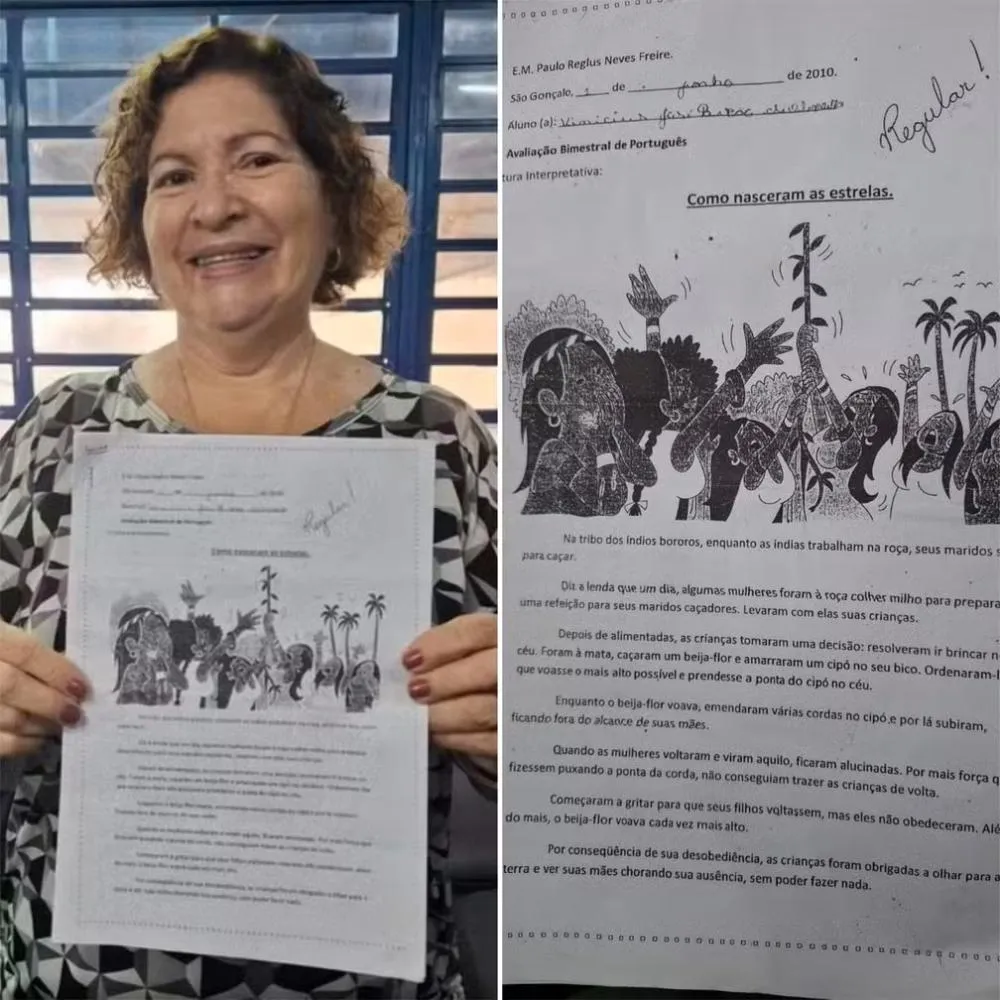 E.M. Paulo Reglus Neves Freire.
São Gonçalo, 1 de junho de 2010.
Aluno (a): Vinicius José
Regular!
Avaliação Bimestral de Português
tura Interpretativa:
Como nasceram as estrelas.
Na tribo dos índios bororos, enquanto as índias trabalham na roça, seus maridos s
para caçar.
Diz a lenda que um dia, algumas mulheres foram à roça colher milho para prepara
uma refeição para seus maridos caçadores. Levaram com elas suas crianças.
Depois de alimentadas, as crianças tomaram uma decisão: resolveram ir brincar n
céu. Foram à mata, caçaram um beija-flor e amarraram um cipó no seu bico. Ordenaram-l
que voasse o mais alto possível e prendesse a ponta do cipó no céu.
Enquanto o beija-flor voava, emendaram várias cordas no cipó e por lá subiram,
ficando fora do alcance de suas mães.
Quando as mulheres voltaram e viram aquilo, ficaram alucinadas. Por mais força q
fizessem puxando a ponta da corda, não conseguiam trazer as crianças de volta.
Começaram a gritar para que seus filhos voltassem, mas eles não obedeceram. Alé
do mais, o beija-flor voava cada vez mais alto.
Por conseqüência de sua desobediência, as crianças foram obrigadas a olhar para a
terra e ver suas mães chorando sua ausência, sem poder fazer nada.